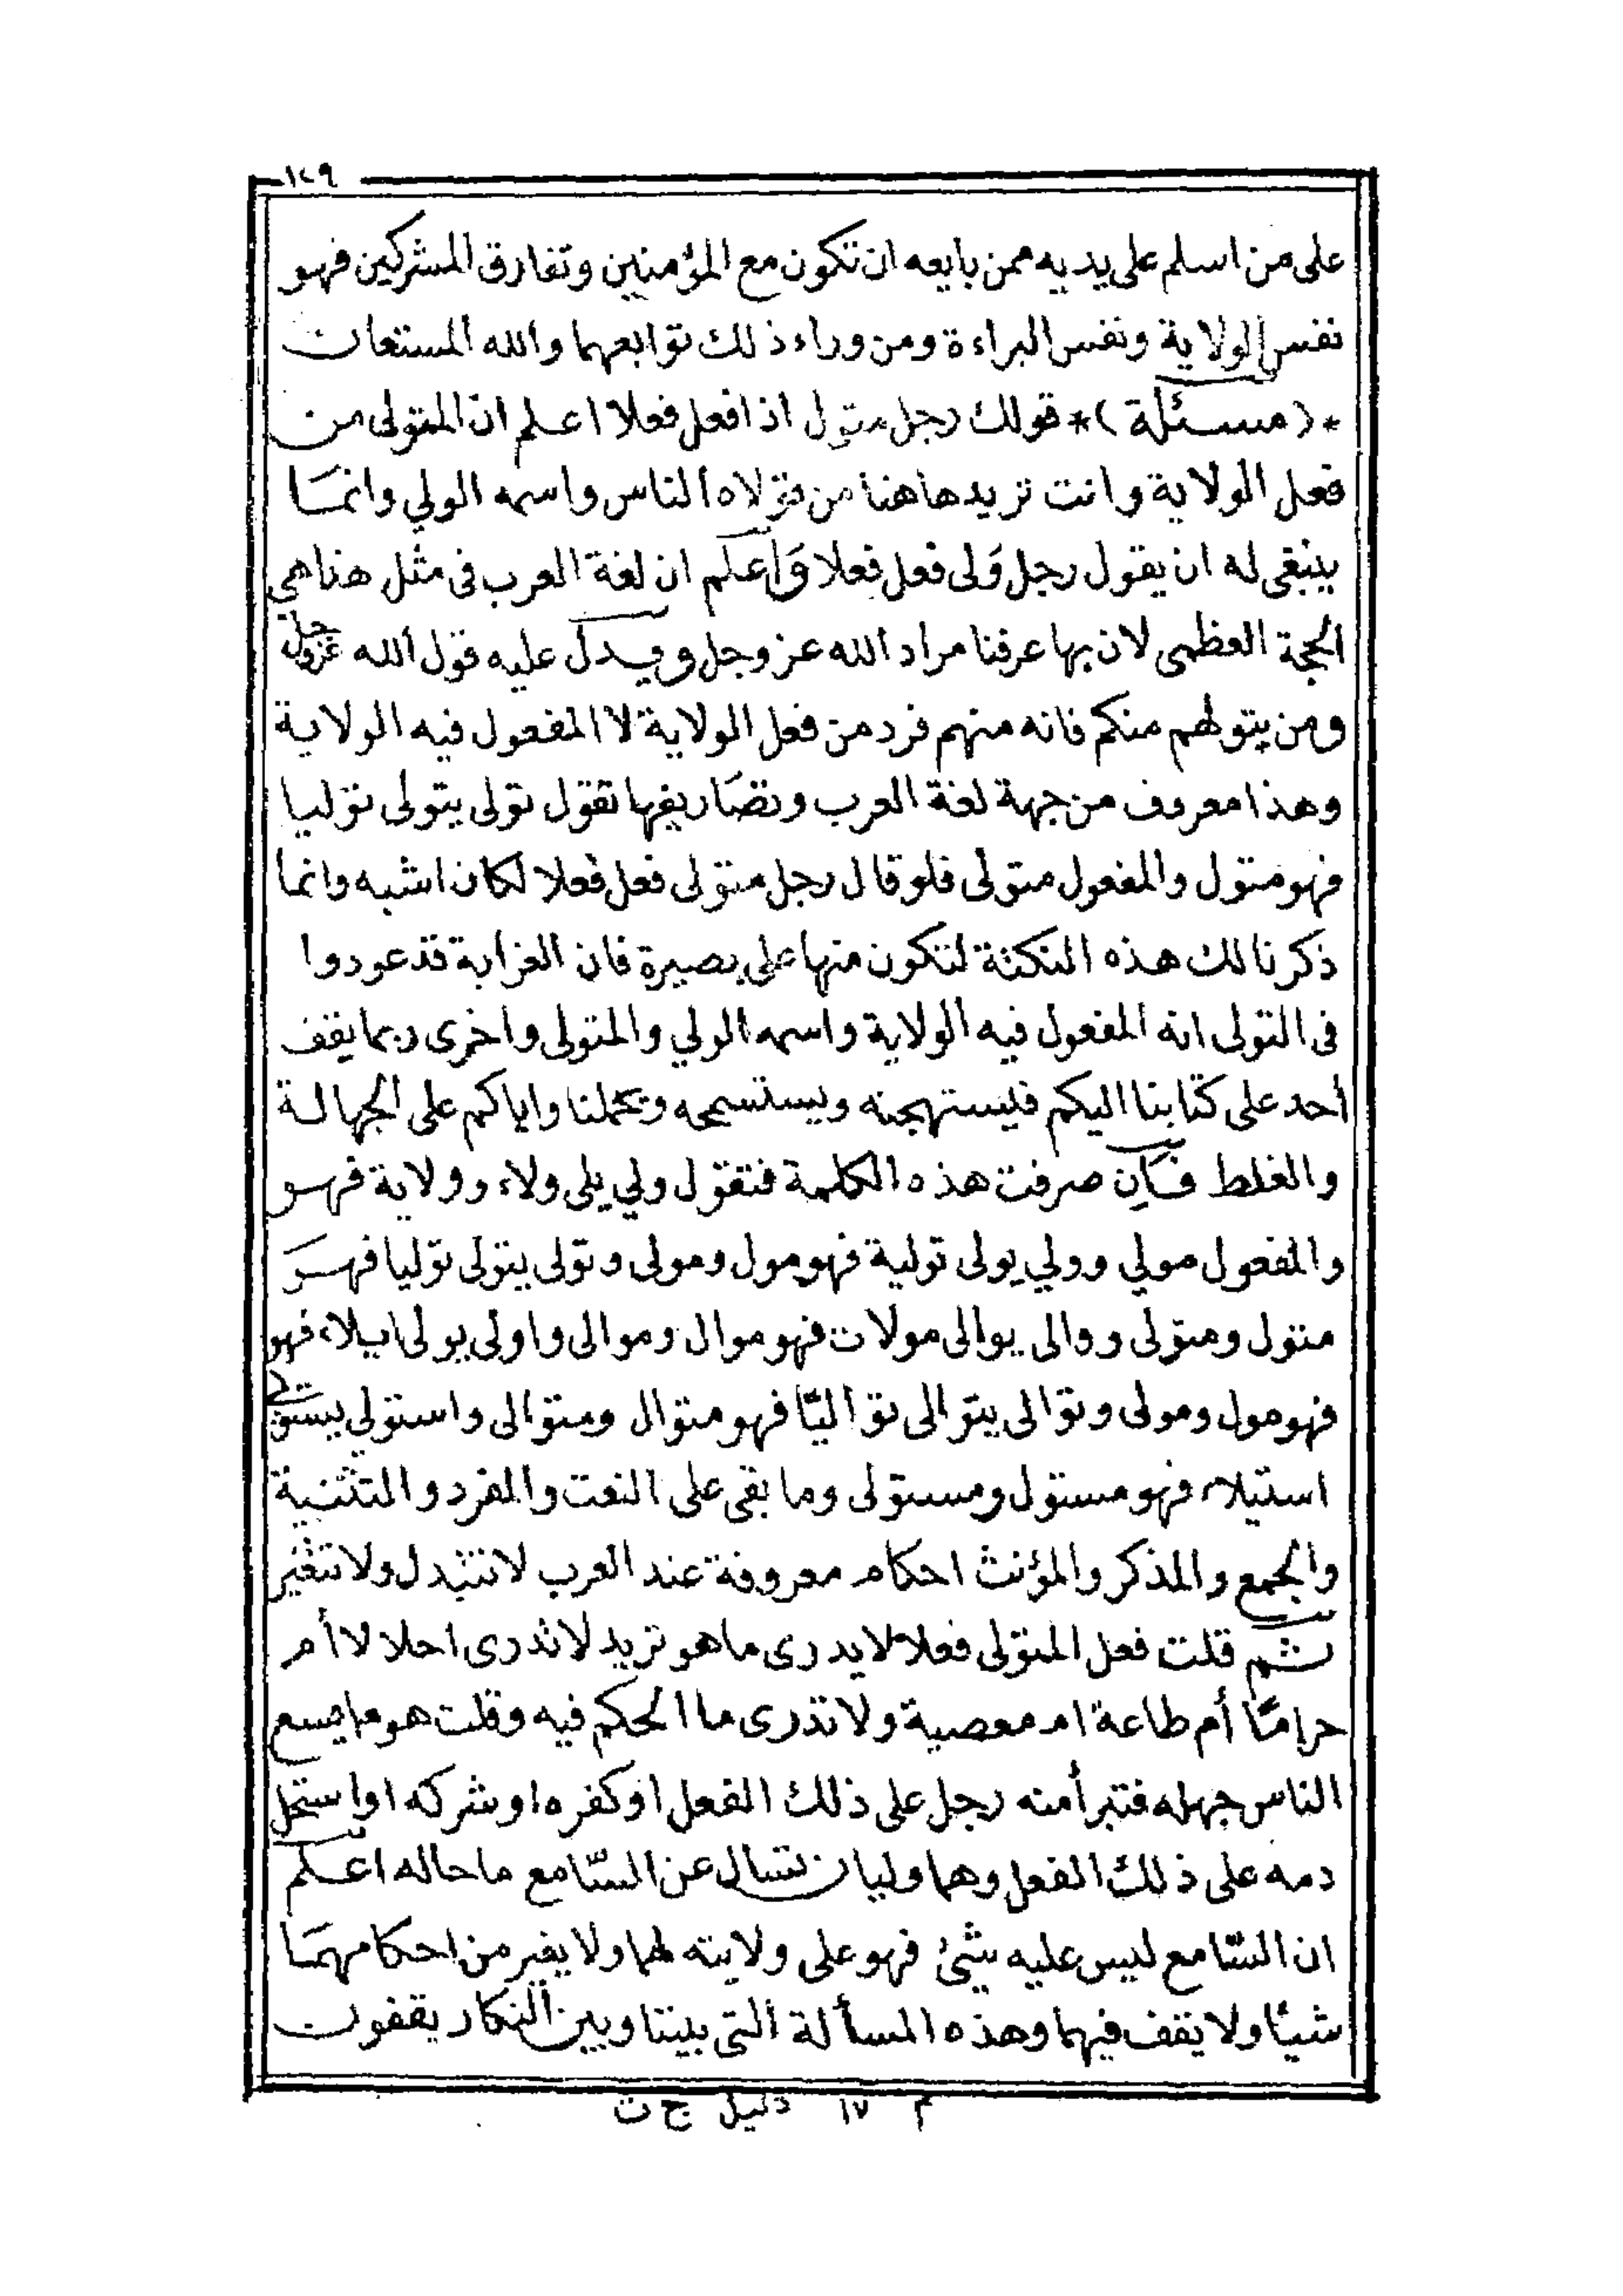 ١٢٩
على من اسلم على يديه ممن بايعه ان تكون مع المؤمنين وتفارق المشركين فهو
نفس الولاية ونفس البراءة ومن وراء ذلك توابعهما والله المستعان
*(مسئلة)* قولك رجل متول اذا فعل فعلا اعلم ان المتولى من
فعل الولاية وانت تريد هاهنا من تولاه الناس واسمه الولي وانما
ينبغى له ان يقول رجل ولى فعل فعلا واعلم ان لغة العرب فى مثل هذا هي
الحجة العظمى لان بها عرفنا مراد الله عز وجل ويدل عليه قول الله عز وجل
ومن يتولهم منكم فانه منهم فرد من فعل الولاية لا المفعول فيه الولاية
وهذا معروف من جهة لغة العرب وتصاريفها تقول تولى يتولى توليا
فهو متول والمفعول متولى فلو قال رجل متولى فعل فعلا لكان اشبه وانما
ذكرنا لك هذه النكتة لتكون منها على بصيرة فان العزابة قد عودوا
فى التولى انه المفعول فيه الولاية واسمه الولي والمتولى واخرى ربما يقف
أحد على كتابنا اليكم فليستهجنه ويستسمجه ويحملنا واياكم على الجهالة
والغلط فان صرفت هذه الكلمة فتقول ولي يلى ولاء وولاية فهو
والمفعول مولي وولي يولى تولية فهو مول ومولى وتولى يتولى توليا فهو
متول ومتولى ووالى يوالى مولات فهو موال وموالى واولى يولى ايلاء فهو
فهو مول ومولى وتوالى يتوالى تواليّا فهو متوال ومتوالى واستولي يستولى
استيلاء فهو مستول ومستولى وما بقى على النعت والمفرد والتثنية
والجمع والمذكر والمؤنث احكام معروفة عند العرب لا تتبدل ولا تتغير
ثم قلت فعل المتولى فعلا لا يدرى ما هو تريد لا تدرى احلالا أم
حرامًا أم طاعة ام معصية ولا تدرى ما الحكم فيه وقلت هو مما يسع
الناس جهله فتبرأ منه رجل على ذلك الفعل او كفره او شركه او استحل
دمه على ذلك الفعل وهما وليان تسال عن السّامع ما حاله اعلم
ان السّامع ليس عليه شئ فهو على ولايته لهما ولا يغير من احكامهما
شيئا ولا يقف فيهما وهذه المسألة التى بيننا وبين النكار يقفون
م ١٧ دليل ج ت